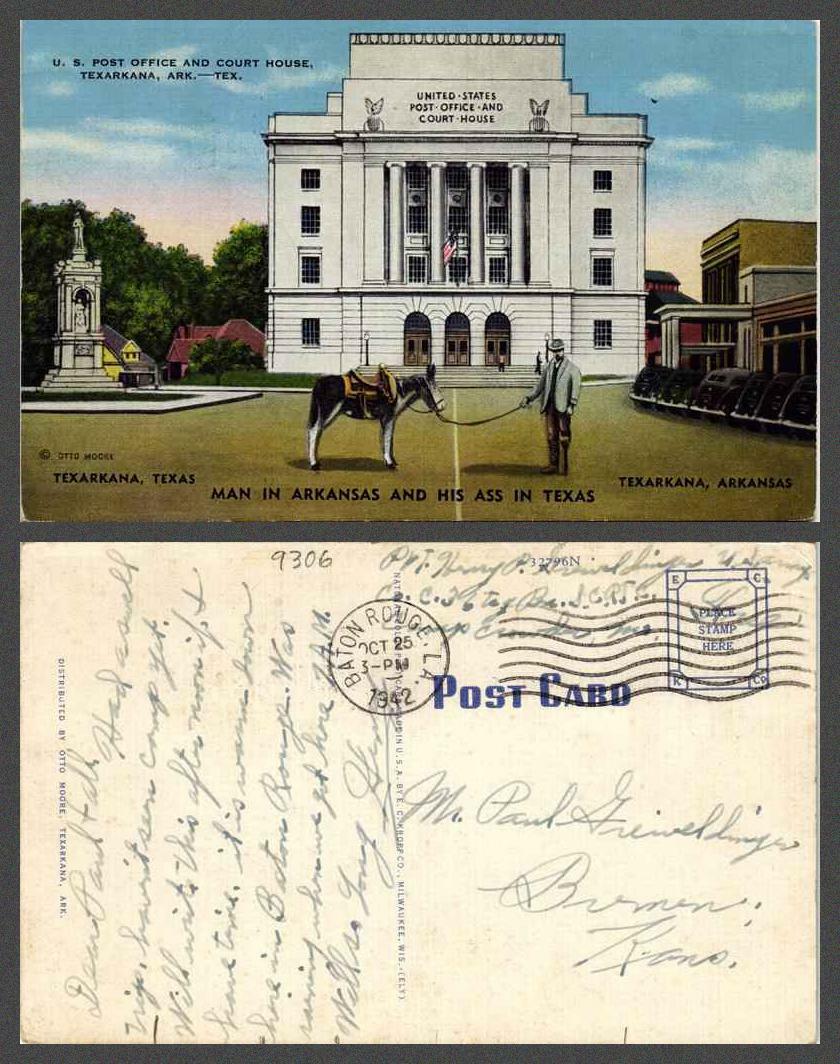 U. S. POST OFFICE AND COURT HOUSE,
TEXARKANA, ARK.—TEX.
UNITED·STATES
POST·OFFICE·AND
COURT·HOUSE
© OTTO MOORE
TEXARKANA, TEXAS
TEXARKANA, ARKANSAS
MAN IN ARKANSAS AND HIS ASS IN TEXAS
9306
32796N
Pvt. Henry
BATON ROUGE, LA.
OCT 25
3-PM
1942
E. C.
PLACE
STAMP
HERE
K Co
POST CARD
DISTRIBUTED BY OTTO MOORE, TEXARKANA, ARK.
U.S.A. BY E. C. KROPP CO., MILWAUKEE, WIS.-(ELY)
Dear Paul & all. Had a swell
trip, havn't seen camp yet.
Will write this after noon if I
have time. it is warm down
here in Baton Rouge. Was
raining when we got here 7 A.M.
Well so long Henry
Mr. Paul
Bremen,
Kans.